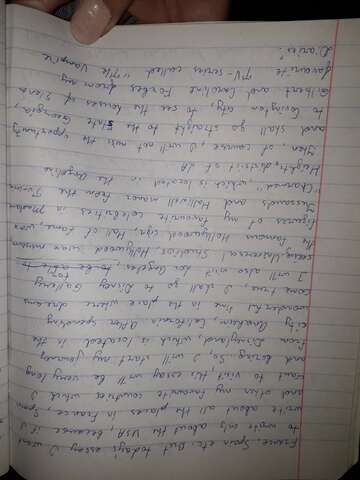 France, Spain etc. But today's essay I want
to wrote only about the USA, because if I
write about all the places in France, Spain
and other my favourite countries which I
want to visit this essay will be very long
and boring. So, I will start my journey
from Disneyland, which is located in the
city Anaheim, California. After spending
wonderful time in the place where dreams
come true, I shall go to Disney Gallery.
I will also visit Los Angeles, for
seeing Universal Studios, Hollywood
the famous Hollywood sign, Hall of fame, wax
figures of my favourite celebrities in Madame
Tussauds and manor from the
"Charmed" which is located in the Angelino
Heights district of LA.
Then, of course, I will not miss the opportunity
and shall go straight to the State Georgia,
to Covington city, to see the houses of Elena
Gilbert and Caroline Forbes from my
favourite TV-series called "The Vampire
Diaries".